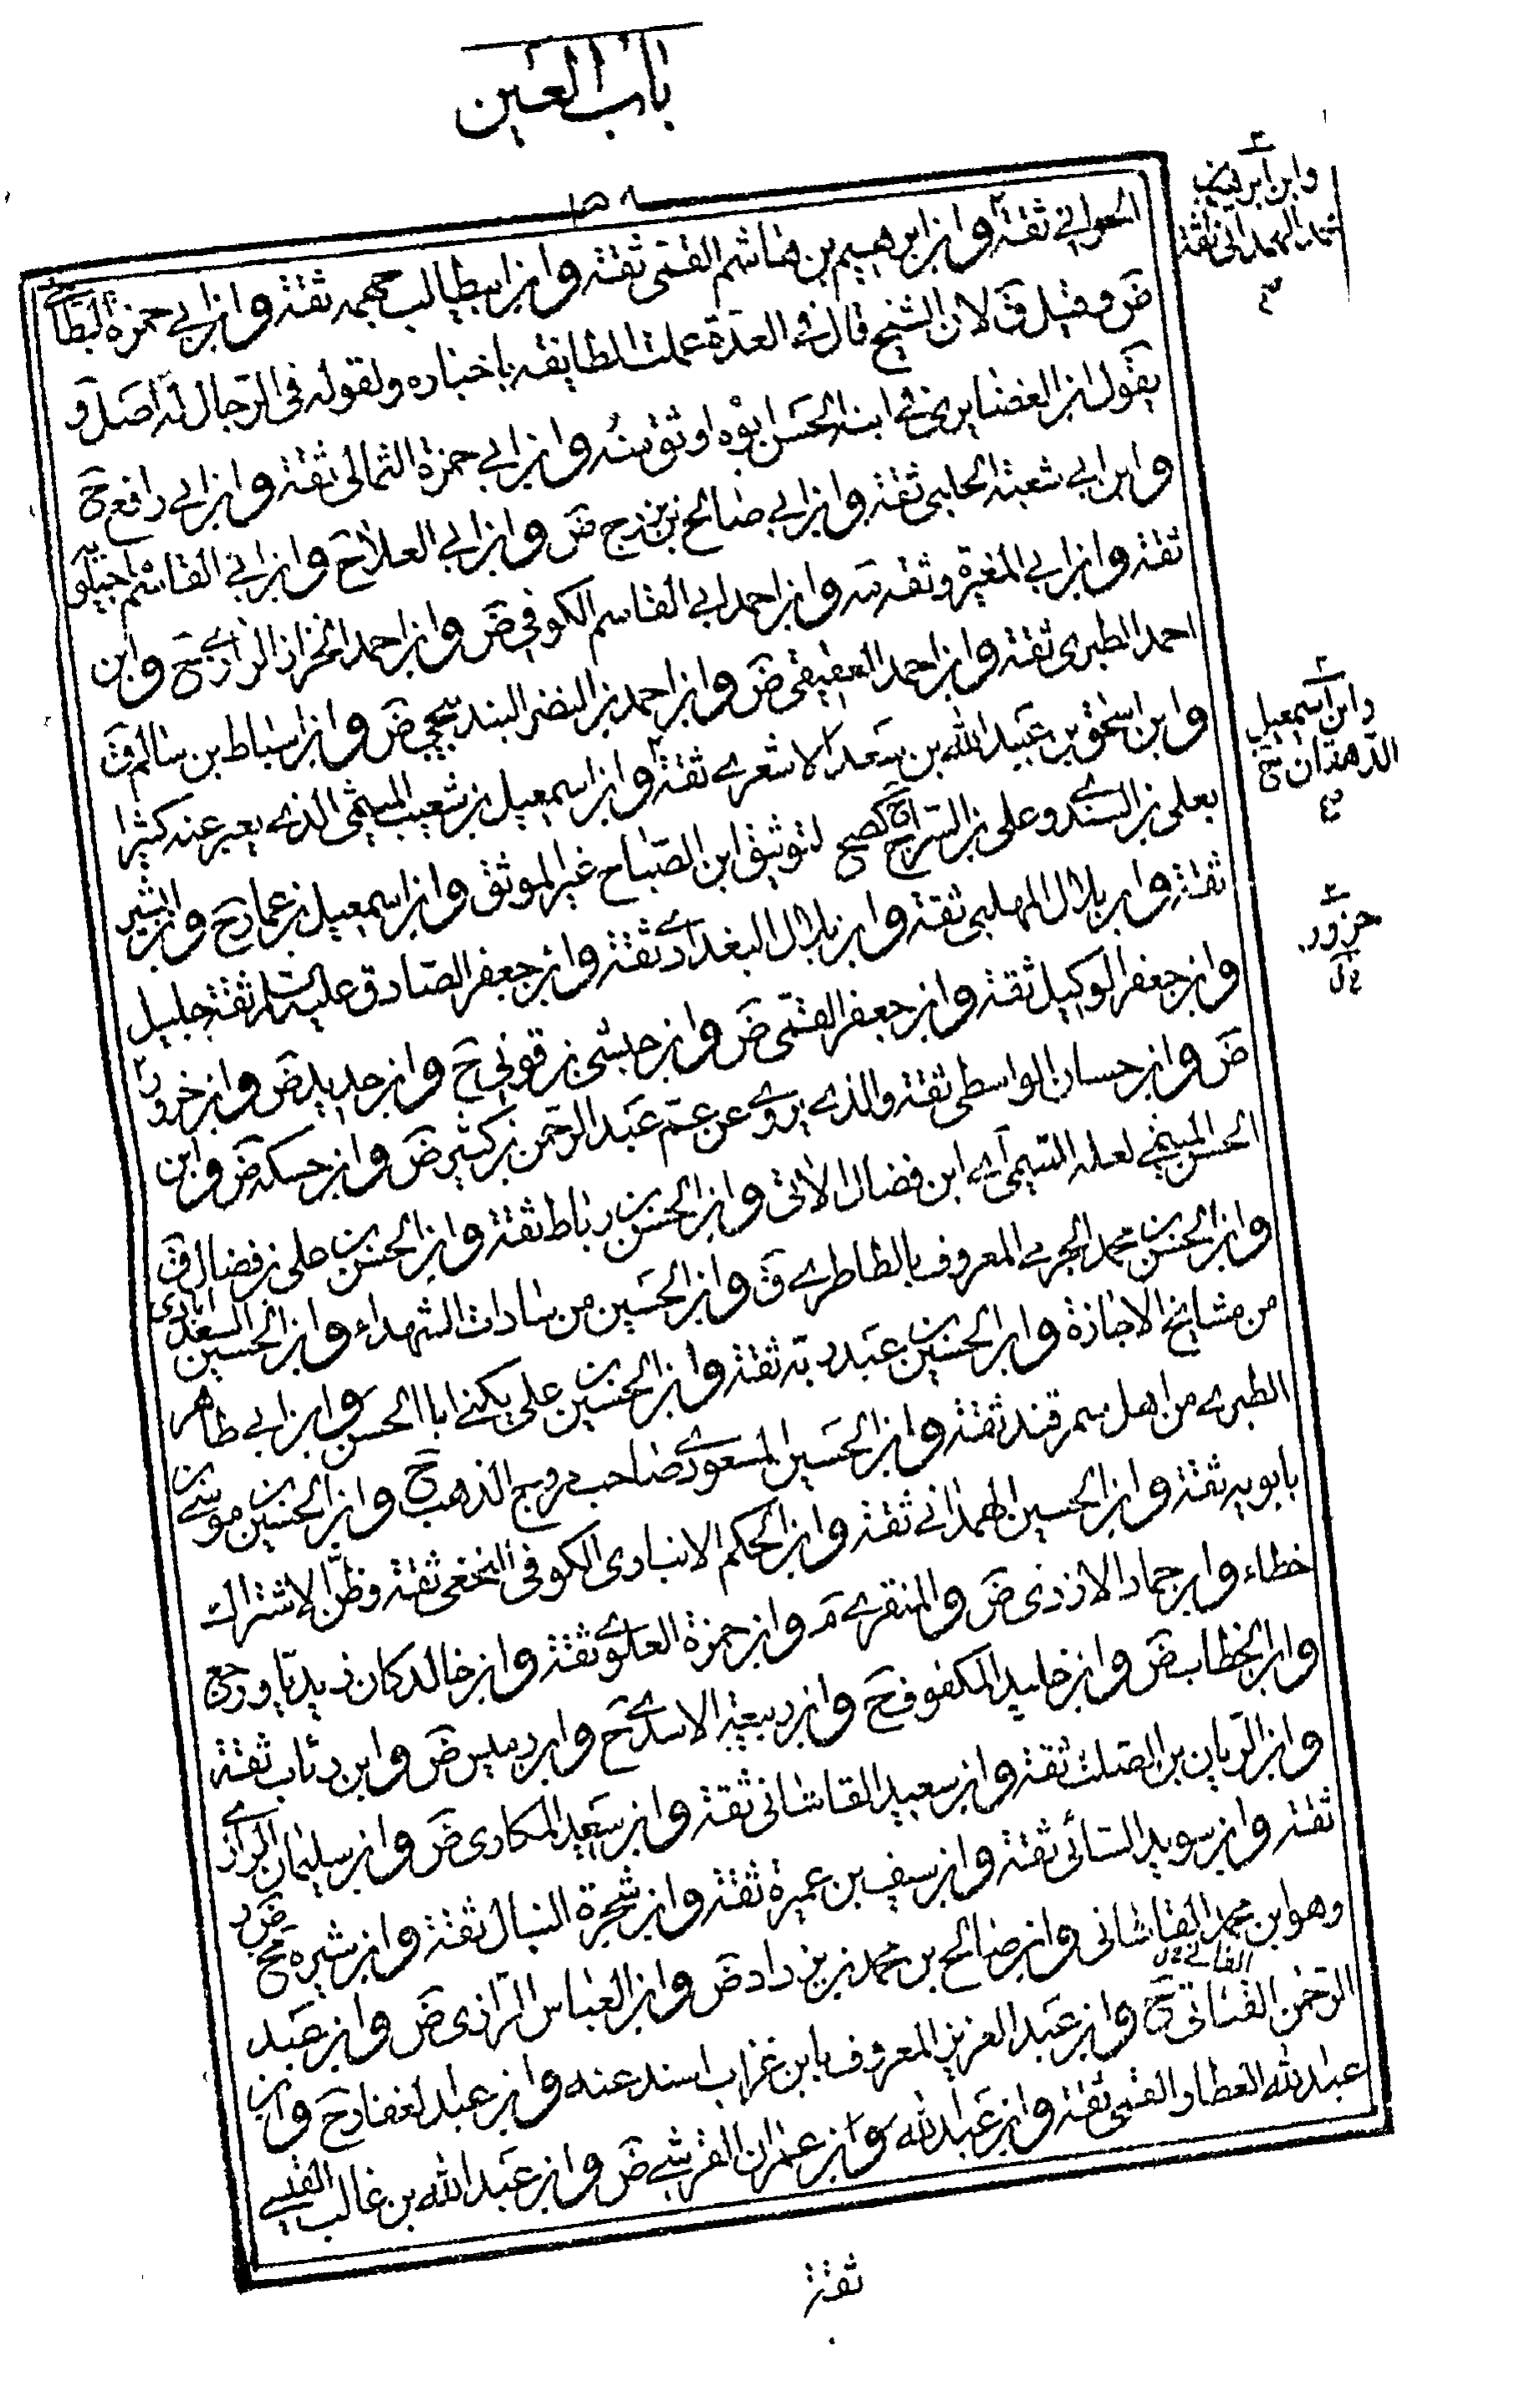 باب العين
الحواني ثقة وابن ابرهيم بن هاشم القمى ثقة وابن ابيطالب جهمه ثقة وابن ابي حمزة البطائنى
ض وقيل ق لان الشيخ قال في العدة عملت الطايفه باخباره ولقوله في الرجال له اصل و
يقول ابن الغضايري في ابنه الحسن ابوه اوثق منه وابن ابي حمزة الثمالى ثقة وابن ابي رافع ح
وابن ابي شعبة الحلبي ثقة وابن ابي صالح بن بزرج ض وابن ابي العلاح وابن ابي القاسم
ثقة وابن ابي المغيرة وثقه وابن احمد ابي القاسم الكوفي ض وابن احمد الخزاز الرازي وابن
احمد الطبرى ثقة وابن احمد العقيقى ض وابن احمد بن النضر البندنيجي ض وابن اسباط بن سالم ق
وابن اسحق بن عبيد الله بن سعد الاشعرى ثقة وابن اسمعيل بن شعيب الميثمى الذى يعبر عنه كثيرا
بعلى بن السندى وعلى بن السرى لتوثيق ابن الصباح غير الموثق وابن اسمعيل بن عمار ح وابن البشير
ثقة وابن بلال المهلبى ثقة وابن بلال البغدادى ثقة وابن جعفر الصادق عليه السلم ثقة جليل
وابن جعفر الوكيل ثقة وابن جعفر القمى ض وابن حبشى بن قونى ح وابن حديد ض وابن
ض وابن حسان الواسطى ثقة والذى يروى عن عمه عبد الرحمن بن كثير ض وابن حسكه ض وابن
الحسن الميثمى لعله التيمى اى ابن فضال الاتى وابن الحسن بن رباط ثقة وابن الحسن بن على بن فضال ق
وابن الحسن بن محمد الجرمى المعروف بالطاطرى ق وابن الحسين من سادات الشهداء وابن الحسين السعدابادى
من مشايخ الاجازة وابن الحسين بن عبد ربه ثقة وابن الحسين بن على يكنى ابا الحسن وابن ابي طاهر
الطبرى من اهل سمرقند ثقة وابن الحسين المسعودى صاحب مروج الذهب ح وابن الحسين بن موسى بن
بابويه ثقة وابن الحسين الهمدانى ثقة وابن الحكم الانبارى الكوفى النخعى ثقة وظن الاشتراك
خطاء وابن حماد الازدى ض والمنقرى م وابن حمزة العلوى ثقة وابن خالد كان زيديا ورجع
وابن الخطاب ض وابن خليد المكفوف ح وابن ربيعة الاسدى ح وابن رميس ض وابن رئاب ثقة
وابن الريان بن الصلت ثقة وابن سعيد القاشانى ثقة وابن سعيد المكارى ض وابن سليمان الزرارى
ثقة وابن سويد السائى ثقة وابن سيف بن عميرة ثقة وابن شجرة النبال ثقة وابن شيره ض
وهو ابن محمد القاشانى وابن صالح بن محمد بن يزداد ض وابن العباس الرازى ض وابن عبد
الرحمن القنانى ح وابن عبد العزيز المعروف بابن غراب اسند عنه وابن عبد الغفار ح وابن
عبد الله العطار القمى ثقة وابن عبد الله وابن عمران القرشى ض وابن عبد الله بن غالب القيسى
ثقة
محمد الهمدانى ثقة
وابن اسمعيل
الدهقان ح
حزور